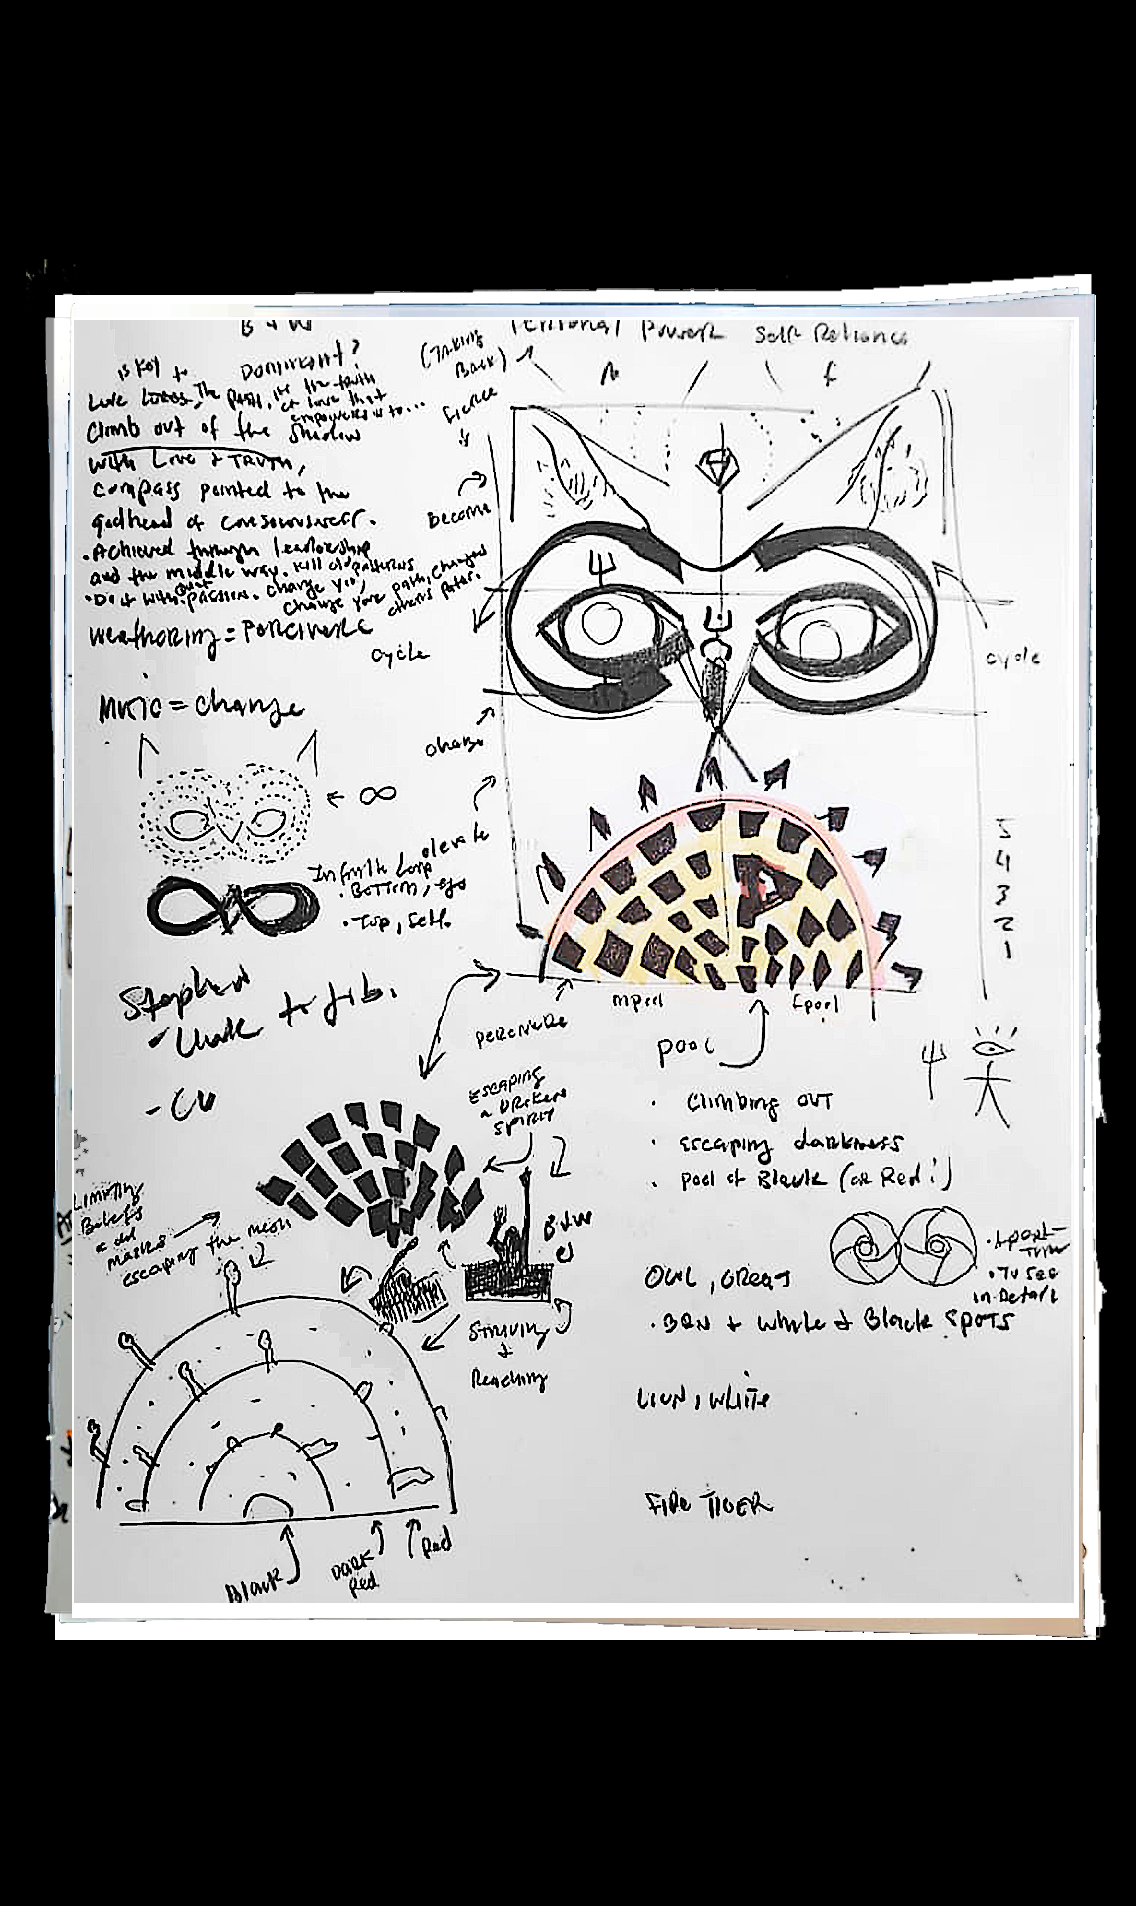 B + W
Dominant?
is key to
Love The path, it's the truth
or love that
empowers us to...
Climb out of the Shadow
with Love + TRUTH,
compass pointed to the
godhead of consciousness.
• Achieved through leadership
and the middle way. Kill old patterns
• Do it with quiet passion. Change you,
change your path, changes
others paths.
Weathering = Percivere
cycle
Music = change
∞
Infinite Loop
• Bottom, ego
• Top, Self.
Stephen
- CU
Personal Power Self Reliance
(Taking
Back)
fierce
Become
change
elevate
cycle
5
4
3
2
1
mpool
fpool
Percivere
Pool
• Climbing OUT
• Escaping darkness
• Pool of Black (or Red?)
Escaping
a broken
spirit
B+W
Limiting
Beliefs
& old
masks
escaping the mesh
Striving
+
Reaching
Owl, Great
• BRN + White + Black Spots
• To See
in Detail
Lion, White
Fire Tiger
Black
Dark
Red
Red